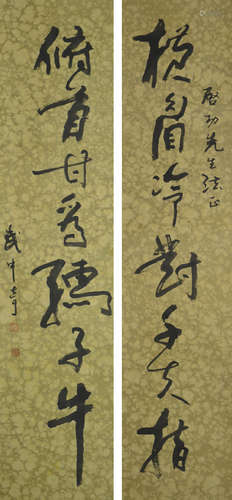 啓功先生正
横眉冷對千夫指
俯首甘爲孺子牛
武中奇